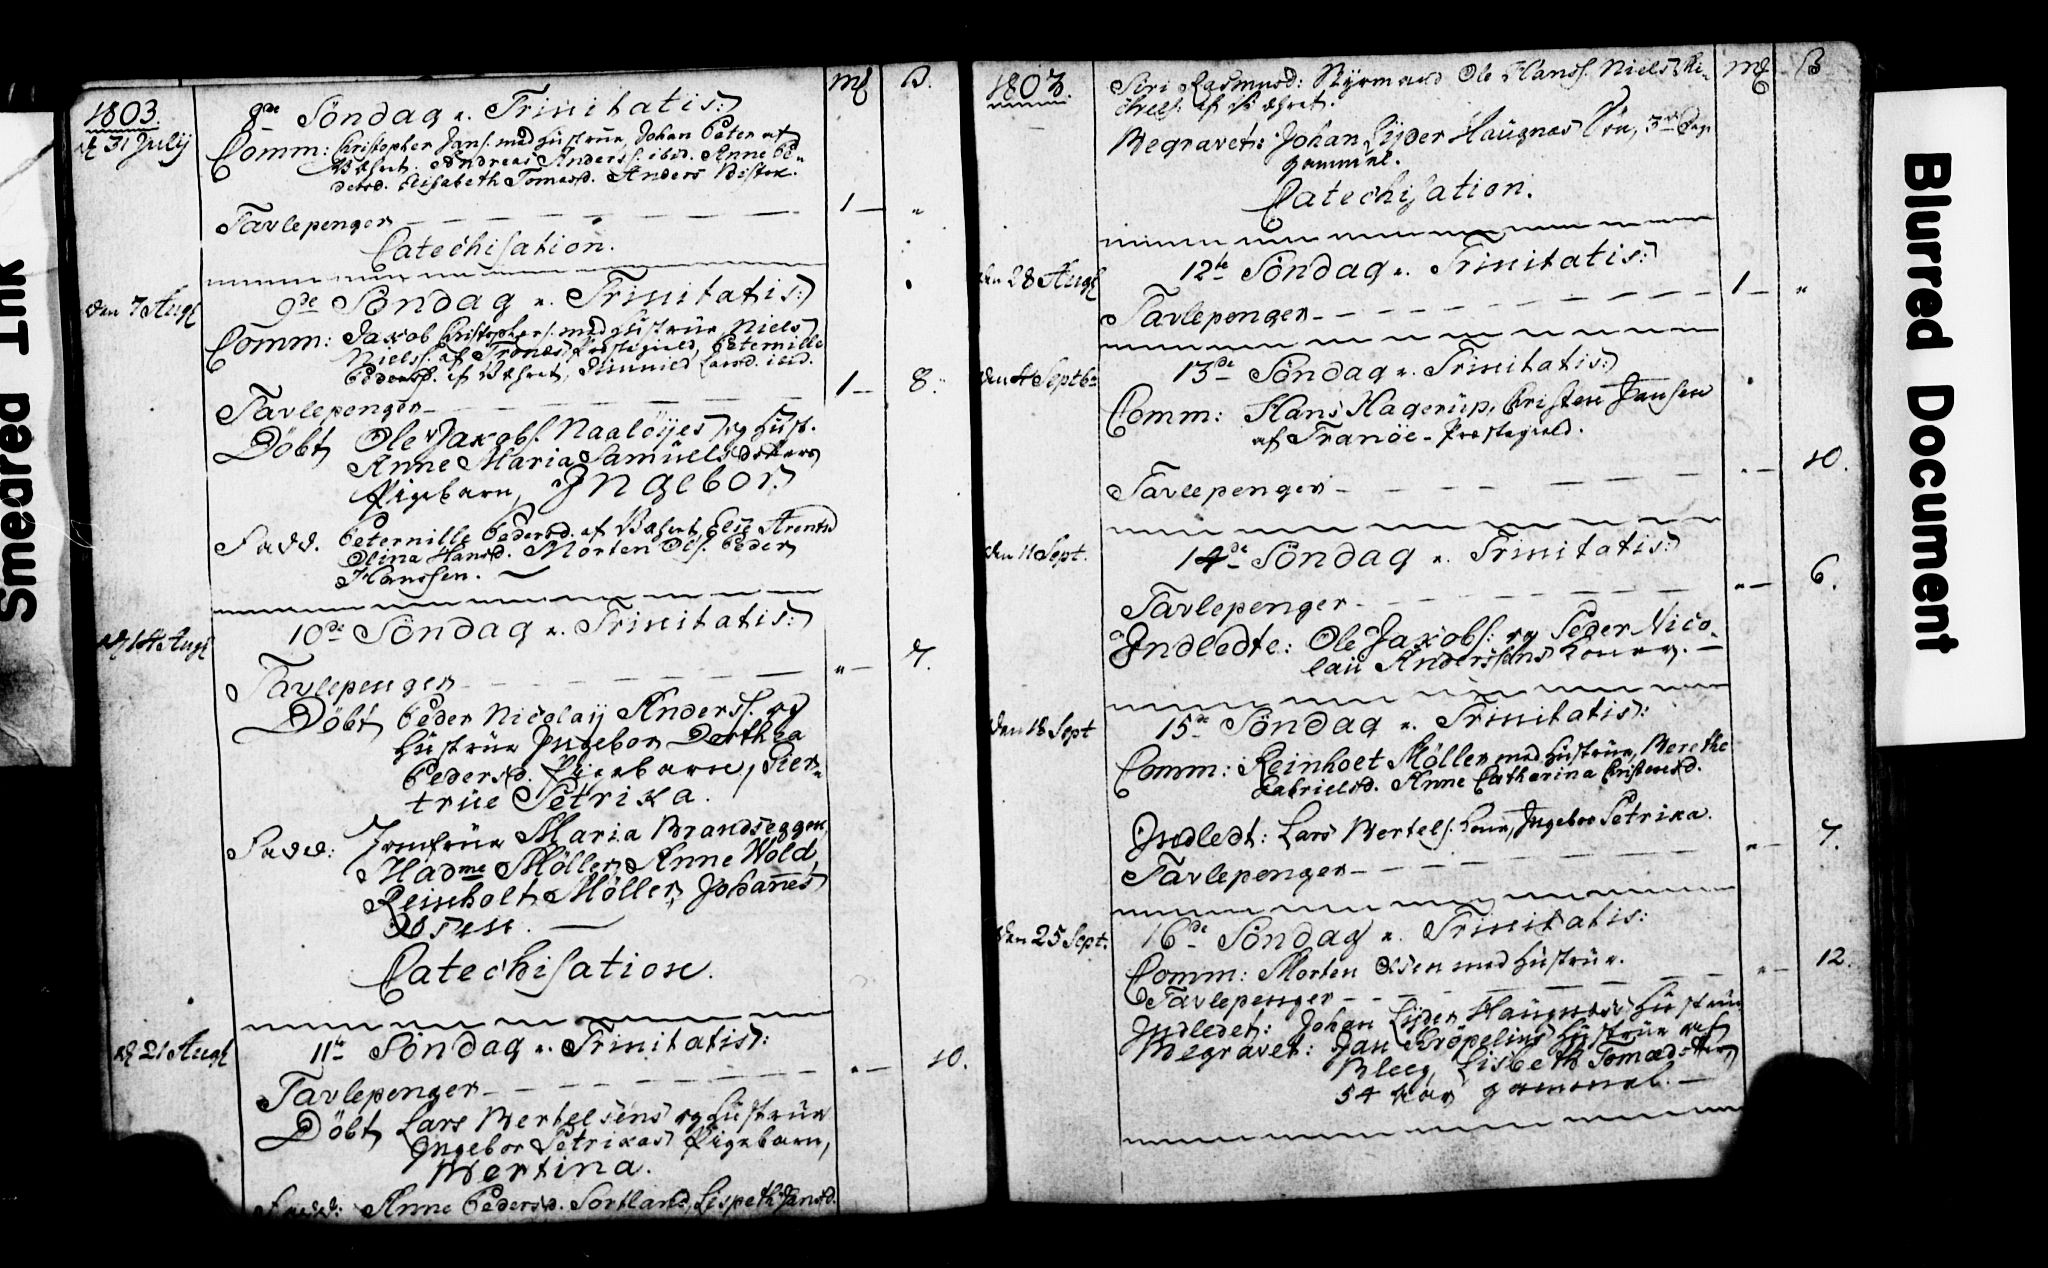 Smeared Ink
1803.
mꝭ
ß.
d. 31 July
8de Söndag e. Trinitatis:
Comm: Christopher Jans. med Hustrue, Johan Peter af
Andreas Anders. ibid. Anne Pe-
dersd. Elisabeth Tomasd. Anders
Tavlepenger — 1 — "
Catechisation.
den 7 Augt
9de Söndag e. Trinitatis:
Comm: Jaxob Christophers. med Hustrue, Niels
Niels. af Tronæs Præstegield, Peternille
Pedersd. af
Tavlepenger — 1 — 8.
Döbt Ole Jaxobs. Naalöyes og Hust.
Anne Maria Samuelsdatters
Pigebarn, Ingebor.
Fadd. Peternille Pedersd. af Elise Arentsd
Olina Hansd. Morten Ols. Peder
Hanssen. —
d. 14 Augt
10de Söndag e. Trinitatis:
Tavlepenger — " — 7.
Döbt Peder Nicolaij Anders. og
Hustrue Ingebor Dorthea
Pedersd. Pigebarn, Gier-
trüe Petrika.
Fadd: Jomfrue Maria Brandseggen,
Madme Möller, Anne Wold,
Reinholt Möller, Johannes
Olsen. —
Catechisation.
d. 21 Augt
11te Söndag e. Trinitatis:
Tavlepenger — " — 10.
Döbt Lars Bertelsens og Hustrue
Ingebor Petrikas Pigebarn,
Bertina.
Fadd: Anne Pedersd. Sortland, Lispeth Jansd.
1803.
mꝭ
ß
Siri Rasmusd: Styrmand Ole Hanss. Niels
af
Begravet: Johan Lyder Haugnæs Sön, 3 Dage
gammel.
Catechisation.
den 28 Augt
12te Söndag e. Trinitatis:
Tavlepenger — 1 — "
den 4 Septbr
13de Söndag e. Trinitatis:
Comm: Hans Hagerup, Christen Jansen
af Tranöe Præstegield.
Tavlepenger — " — 10.
den 11 Sept.
14de Söndag e. Trinitatis:
Tavlepenger — " — 6.
Indledte: Ole Jaxobs: og Peder Nico-
lau Anderssens Koner. —
den 18 Sept
15de Söndag e. Trinitatis:
Comm: Reinhoet Möller med Hustrue, Berethe
Gabrielsd. Anne Catharina Christensd.
Indledt: Lars Bertels. Kone, Ingebor Petrika.
Tavlepenger — " — 7.
den 25 Sept.
16de Söndag e. Trinitatis:
Comm: Morten Olsen med Hustrue.
Tavlepenger — " — 12.
Indledet: Johan Lyder Haugnæs Hustrue
Begravet: Jan Kröpelins Hustrue af
Bleeg, Lisbeth Tomasdatter,
54 Aar gammel. —
Blurred Document